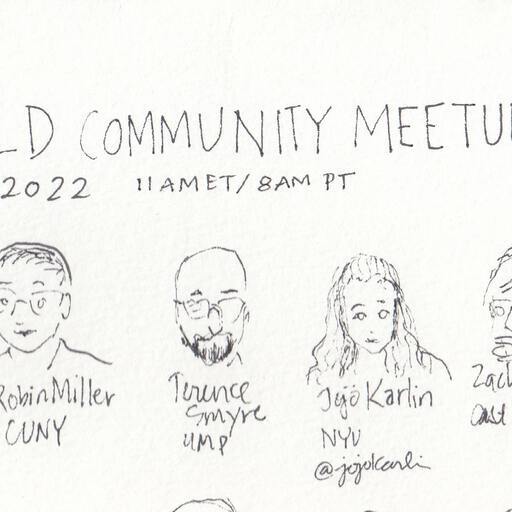 LD COMMUNITY MEETU
2022 11AM ET/8AM PT
Robin Miller
CUNY
Terence
Smyre
UMP
Jojo Karlin
NYU
@jojokarlin
Zach